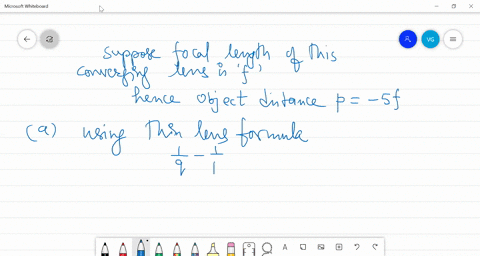 Microsoft Whiteboard
VG
suppose focal length of this
converging lens is 'f'
hence object distance p = -5f
(a) using Thin lens formula
1/q - 1/1